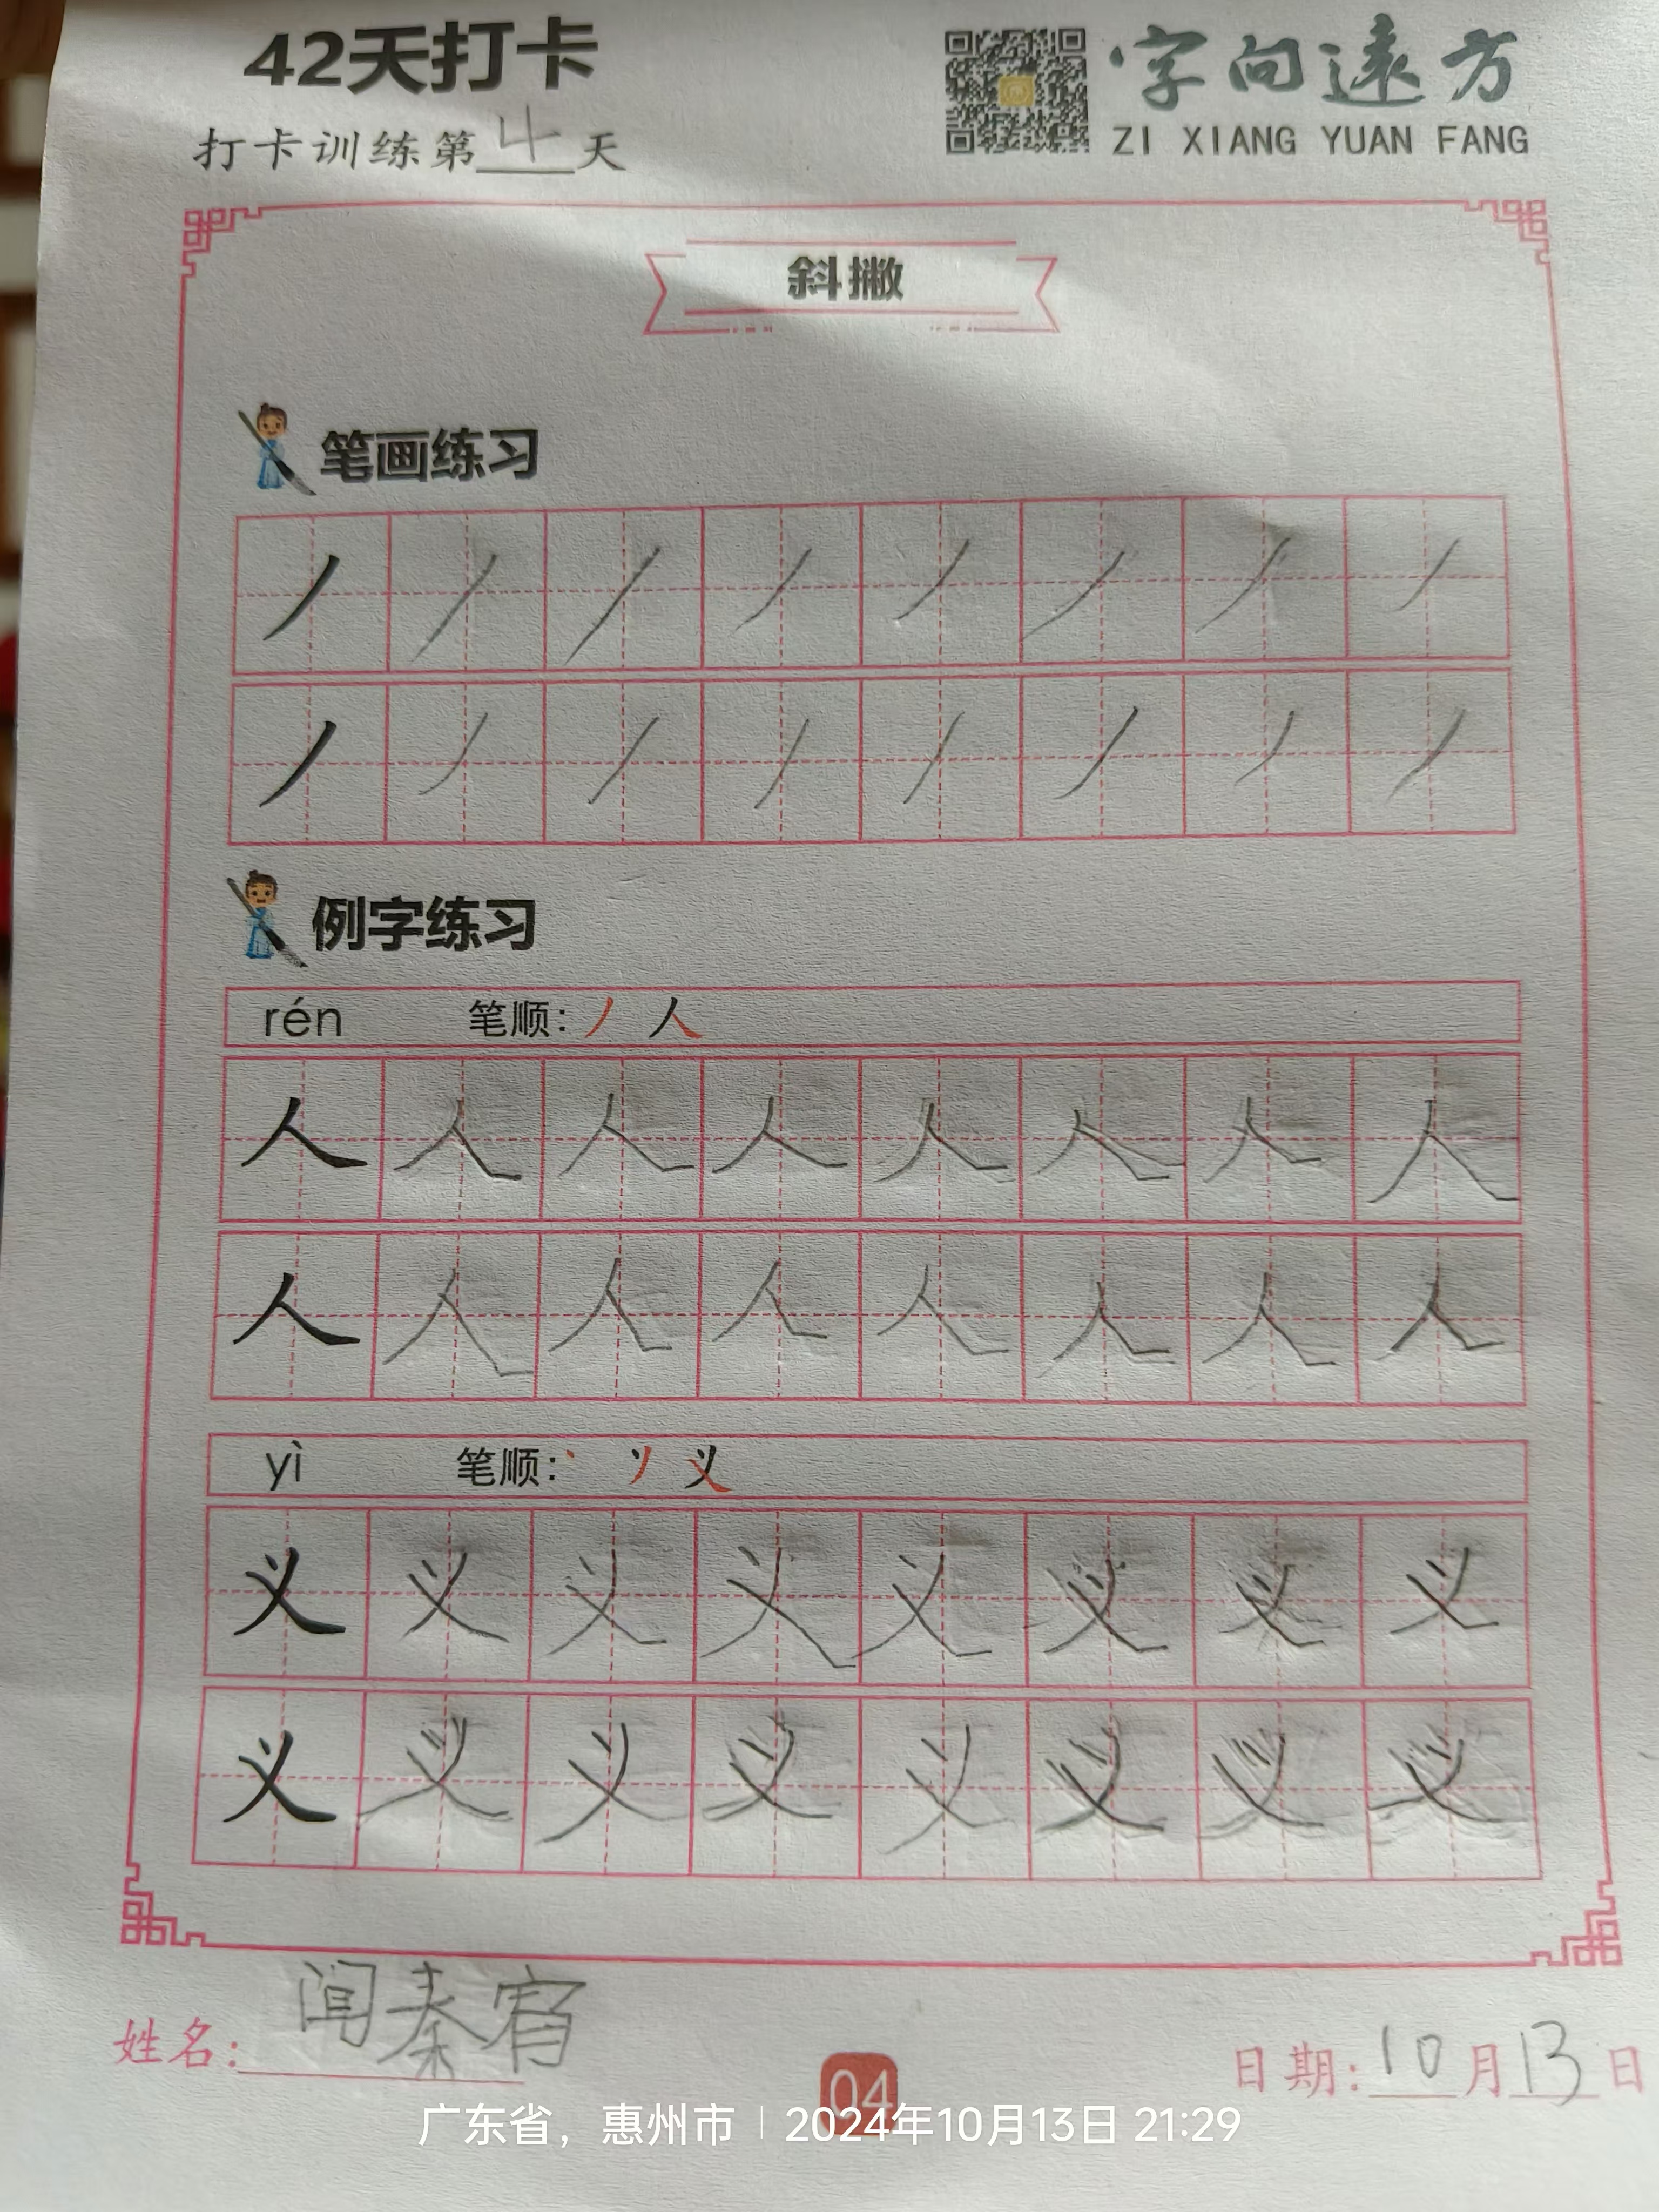 42天打卡
字向遠方
打卡训练第4天
ZI XIANG YUAN FANG
斜撇
笔画练习
丿 丿 丿 丿 丿 丿 丿 丿
丿 丿 丿 丿 丿 丿 丿 丿
例字练习
rén 笔顺：丿 人
人 人 人 人 人 人 人 人
人 人 人 人 人 人 人 人
yì 笔顺：丶 丷 义
义 义 义 义 义 义 义 义
义 义 义 义 义 义 义 义
姓名：闻秦宵
日期：10月13日
04
广东省，惠州市 | 2024年10月13日 21:29